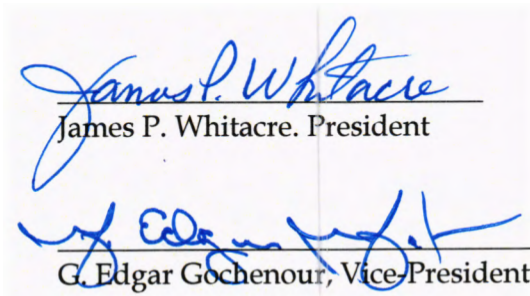 James P. Whitacre
James P. Whitacre. President
G. Edgar
G. Edgar Gochenour, Vice-President